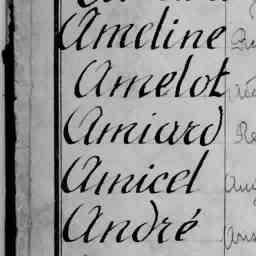 Ameline
Amelot
Amiard
Amicel
André